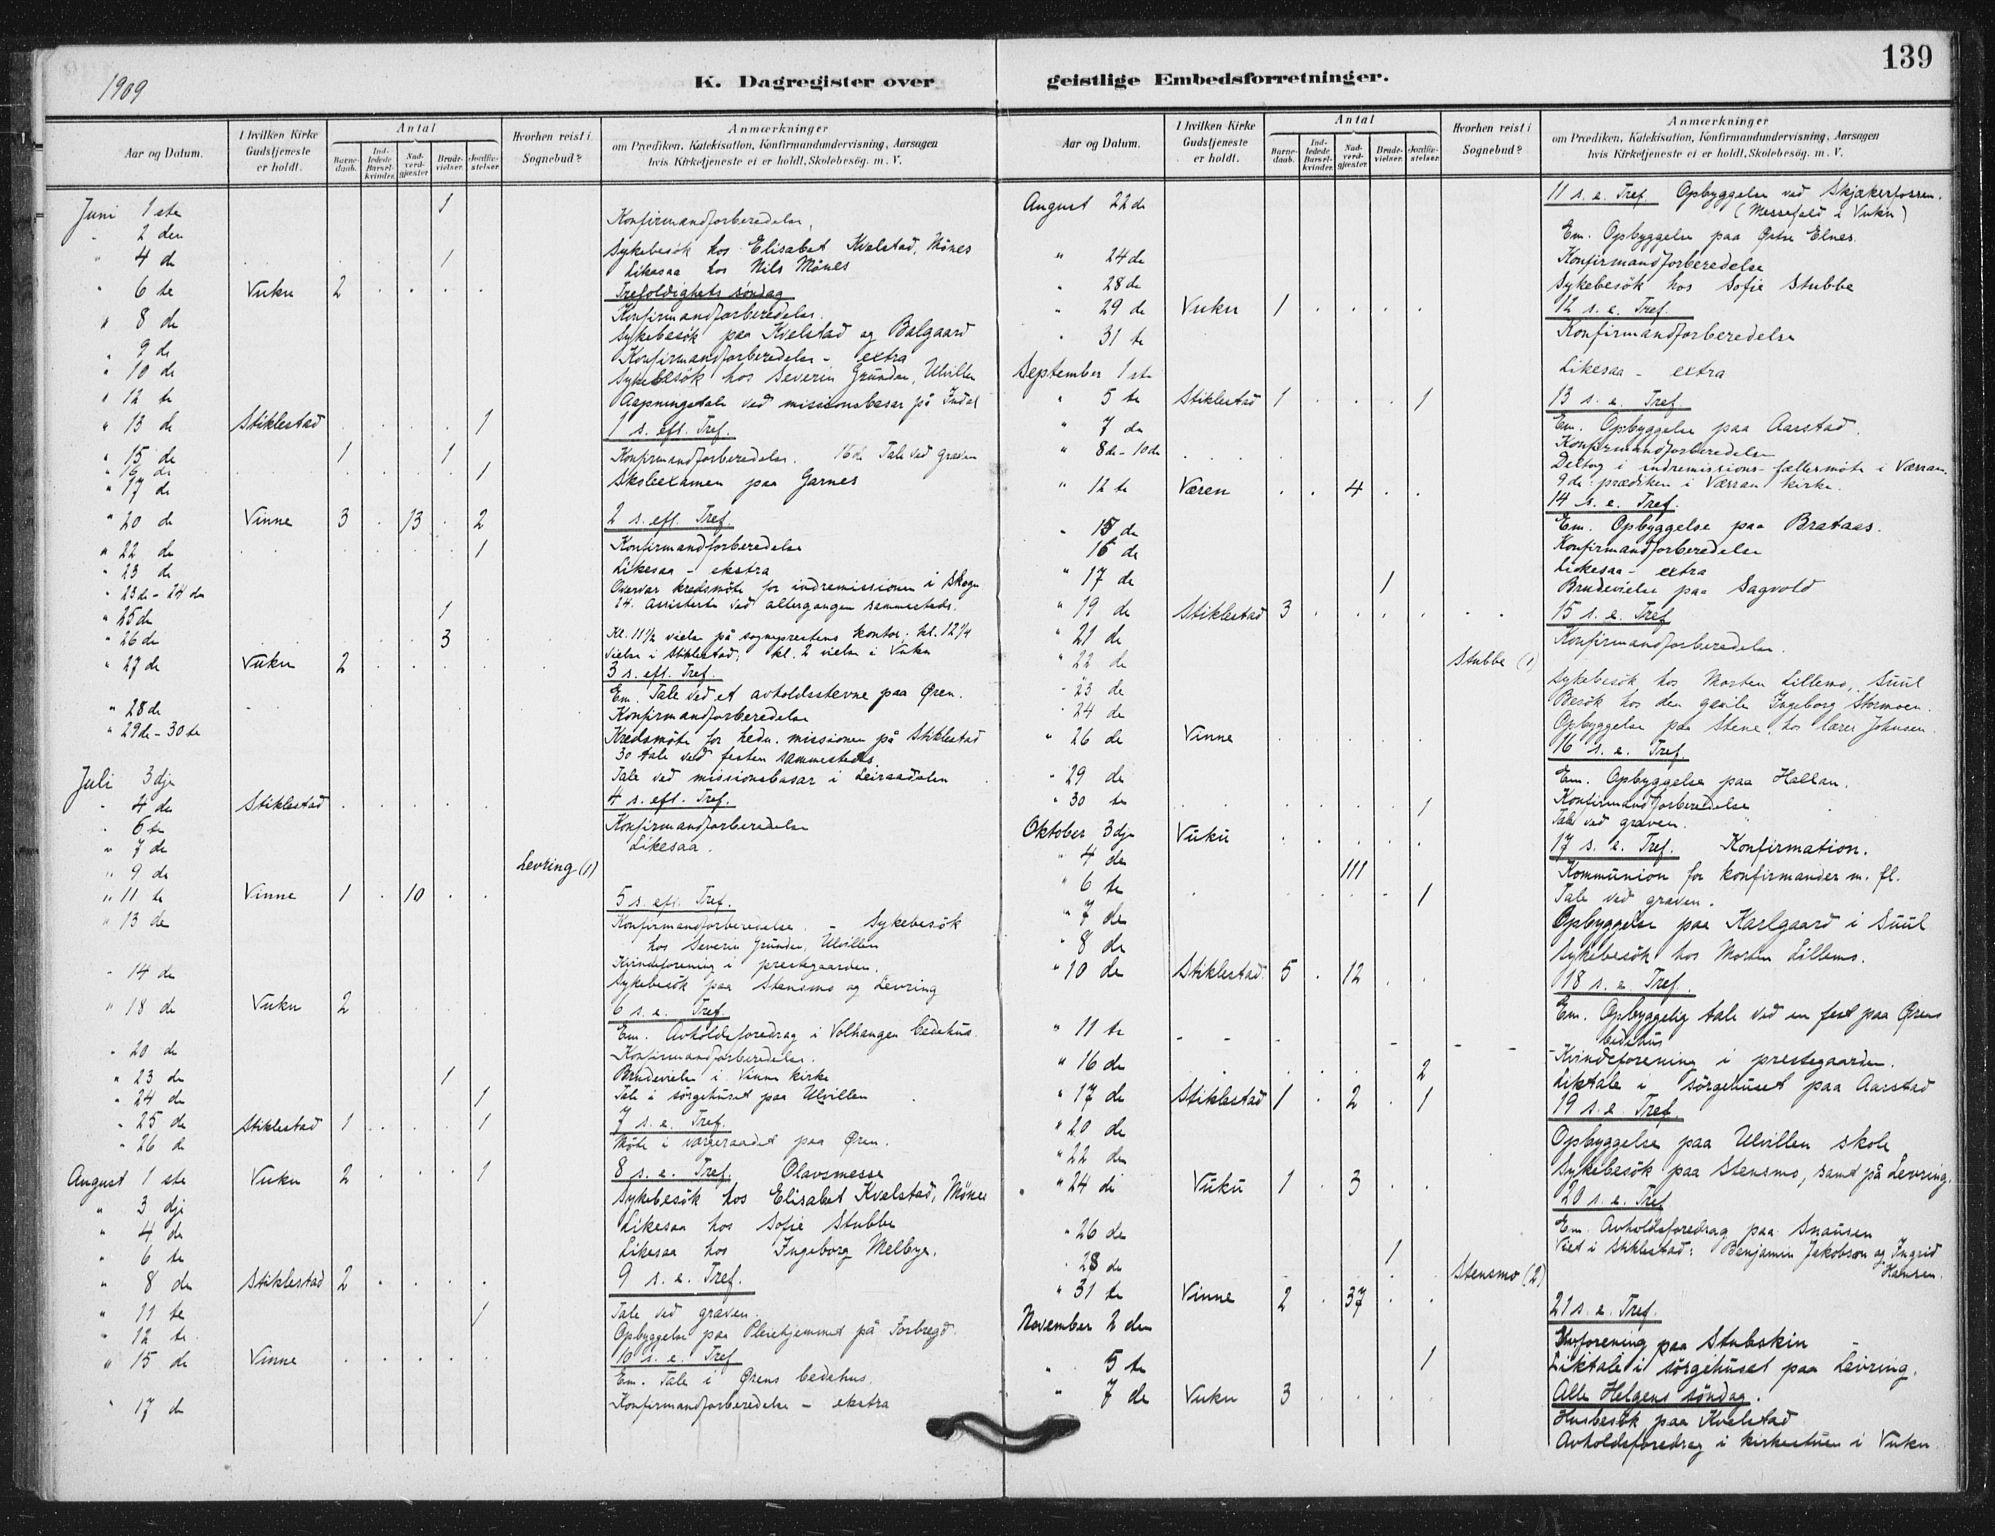 139
1909
K. Dagregister over geistlige Embedsforretninger.
Aar og Datum.
I hvilken Kirke Gudstjeneste er holdt.
Antal
Barnedaab.
Indledede Barselkvinder.
Nadverdgjæster.
Brudevielser.
Jordfæstelser.
Hvorhen reist i Sognebud?
Anmærkninger
om Prædiken, Katekisation, Konfirmandundervisning, Aarsagen
hvis Kirketjeneste ei er holdt, Skolebesøg. m. V.
Juni 1ste 1
" 2den Konfirmandforberedelse.
" 4de 1 Sykebesök hos Elisabet Kvelstad, Mönes
Likesaa hos Nils Mönes
" 6te Vuku 2 Trefoldighets söndag
" 8de Konfirmandforberedelse.
Sykebesök paa Kvelstad og Balgaard
" 9de Konfirmandforberedelse - extra
" 10de Sykebesök hos Severin Gründer, Ulvillen
" 12te Aapningstale ved missionsbasar på Indal
" 13de Stiklestad 1 1 s. eft. Tref.
" 15de 1 1 Konfirmandforberedelse. 16de Tale ved graven
" 16de 1
" 17de Skoleexamen paa Garnes
" 20de Vinne 3 13 2 2 s. eft. Tref.
" 22de 1 Konfirmandforberedelse
" 23de Likesaa - ekstra
" 23de - 24de Overvar kredsmöte for indremissionen i Skogn
24. Assisterte ved altergangen sammesteds.
" 25de 1
" 26de 3 Kl. 11 1/2 vielse på sogneprestens kontor; kl. 12 1/4
vielse i Stiklestad; kl. 2 vielse i Vuku
" 27de Vuku 2 3 s. eft. Tref.
Em. Tale ved et avholdsstevne paa Ören.
" 28de Konfirmandforberedelse
" 29de - 30te Kredsmöte for hedn. missionen på Stiklestad
30 tale ved festen sammesteds.
Juli 3dje Tale ved missionsbasar i Leiraadalen
" 4de Stiklestad 4 s. eft. Tref.
" 6te Konfirmandforberedelse
" 7de Likesaa.
" 9de Levring (1)
" 11te Vinne 1 10 5 s. eft. Tref.
" 13de Konfirmandforberedelse. - Sykebesök
hos Severin Gründer, Ulvillen
" 14de Kvindeforening i prestegaarden.
Sykebesök paa Stensmo og Levring
" 18de Vuku 2 6 s. e. Tref.
Em. Avholdsforedrag i Volhaugen bedehus.
" 20de Konfirmandforberedelse.
" 23de 1 Brudevielse i Vinne kirke
" 24de 1 Tale i sörgehuset paa Ulvillen
" 25de Stiklestad 1 1 7 s. e. Tref.
" 26de Möte i vergeraadet paa Ören.
August 1ste Vuku 2 1 8 s. e. Tref. Olavsmesse
" 3dje Sykebesök hos Elisabet Kvelstad, Mönes
" 4de Likesaa hos Sofie Stubbe
" 6te Likesaa hos Ingeborg Melbye.
" 8de Stiklestad 2 9 s. e. Tref.
" 11te 1 Tale ved graven.
" 12te Opbyggelse paa Pleiehjemmet på Forbregd.
" 15de Vinne 10 s. e. Tref
Em. Tale i Örens bedehus.
" 17de Konfirmandforberedelse - ekstra
Aar og Datum.
I hvilken Kirke Gudstjeneste er holdt.
Antal
Barnedaab.
Indledede Barselkvinder.
Nadverdgjæster.
Brudevielser.
Jordfæstelser.
Hvorhen reist i Sognebud?
Anmærkninger
om Prædiken, Katekisation, Konfirmandundervisning, Aarsagen
hvis Kirketjeneste ei er holdt, Skolebesög. m. V.
August 22de 11 s. e. Tref. Opbyggelse ved Skjækerfossen.
(Messefald i Vuku)
Em. Opbyggelse paa Östre Elnes.
" 24de Konfirmandforberedelse
" 28de Sykebesök hos Sofie Stubbe
" 29de Vuku 1 12 s. e. Tref.
" 31te Konfirmandforberedelse
September 1ste Likesaa - extra
" 5te Stiklestad 1 1 13 s. e. Tref.
Em. Opbyggelse paa Aarstad.
" 7de Konfirmandforberedelse
" 8de - 10de Deltog i indremissions-fællesmöte i Værran
9de: prædiken i Værran kirke.
" 12te Væren 4 14 s. e. Tref.
Em. Opbyggelse paa Brataas.
" 15de Konfirmandforberedelse
" 16de Likesaa - extra
" 17de 1 Brudevielse paa Sagvold
" 19de Stiklestad 3 15 s. e. Tref
" 21de Konfirmandforberedelse.
" 22de Stubbe (1) Sykebesök hos Morten Lillemo, Suul
" 23de Besök hos den gamle Ingeborg Stormoen.
" 24de Opbyggelse paa Stene, hos lærer Johnsen.
" 26de Vinne 16 s. e. Tref.
Em. Opbyggelse paa Hallan.
" 29de Konfirmandforberedelse
" 30te 1 Tale ved graven.
Oktober 3dje Vuku 17 s. e. Tref. Konfirmation.
" 4de 111 Kommunion for konfirmander m. fl.
" 6te 1 Tale ved graven.
" 7de Opbyggelse paa Karlgaard i Suul
" 8de Sykebesök hos Morten Lillemo.
" 10de Stiklestad 5 12 18 s. e. Tref.
Em. Opbyggelig tale ved en fest paa Örens
bedehus
" 11te Kvindeforening i prestegaarden.
" 16de 2 Liktale i sörgehuset paa Aarstad
" 17de Stiklestad 1 2 1 19 s. e. Tref.
" 20de Opbyggelse paa Ulvillen skole
" 22de Sykebesök paa Stensmo, samt på Levring.
" 24de Vuku 1 3 20 s. e. Tref
Em. Avholdsforedrag paa Snausen
" 26de
" 28de 1 Viet i Stiklestad: Benjamin Jakobson og Ingrid
Hansen.
Stensmo (2)
" 31te Vinne 2 37 21 s. e. Tref.
November 2den Kvforening paa Stubskin
" 5te 1 Liktale i sörgehuset paa Levring.
" 7de Vuku 3 Alle Helgens söndag.
Husbesök paa Kvelstad
Avholdsforedrag i kirkestuen i Vuku.